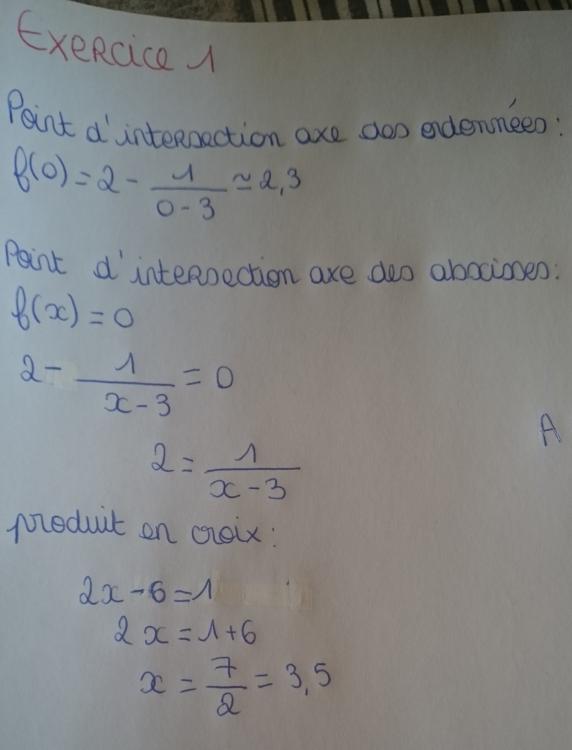 Exercice 1
Point d'intersection axe des ordonnées :
f(0) = 2 - 1/(0-3) ≃ 2,3
Point d'intersection axe des abscisses :
f(x) = 0
2 - 1/(x-3) = 0
2 = 1/(x-3)
A
produit en croix :
2x - 6 = 1
2x = 1+6
x = 7/2 = 3,5